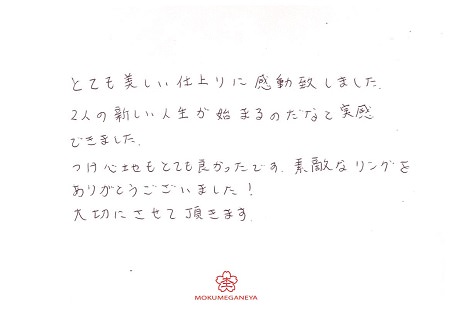 とても美しい仕上りに感動致しました.
2人の新しい人生が始まるのだなと実感
できました.
つけ心地もとても良かったです. 素敵なリングを
ありがとうございました!
大切にさせて頂きます.
MOKUMEGANEYA